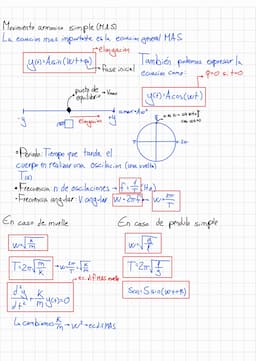 Movimiento armonico simple (MAS)
La ecuacion mas importante es la ecuacion general MAS
elongacion
y(t)=A sin(wt+φ)
Fase inicial
También podemos expresar la
ecuacion como:
φ=0 s. t=0
y(t)=A cos(wt)
punto de
equilibrio
-y
elongacion
+y
· Periodo: Tiempo que tarda el
cuerpo en realizar una oscilacion (una vuelta)
T(s)
· Frecuencia: nº de oscilaciones → f=1/T (Hz)
· Frecuencia angular: V angular w=2πf → w=2π/T
En caso de muelle
w=√(k/m)
T=2π√(m/k) → w=2π/T=√(k/m)
ec. dif MAS muelle
d²y/dt² + k/m y(t)=0
La cambiamos k/m → w² → ec dif MAS
En caso de pendulo simple
w=√(g/l)
T=2π√(l/g)